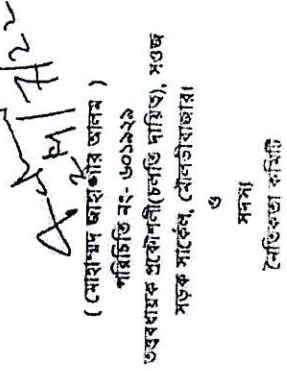 ( মোহাম্মদ জাহাঙ্গীর আলম )
পরিচিতি নং- ৬০১৯২৯
তত্ত্বাবধায়ক প্রকৌশলী(চলতি দায়িত্ব), সওজ
সড়ক সার্কেল, মৌলভীবাজার।
ও
সদস্য
নৈতিকতা কমিটি